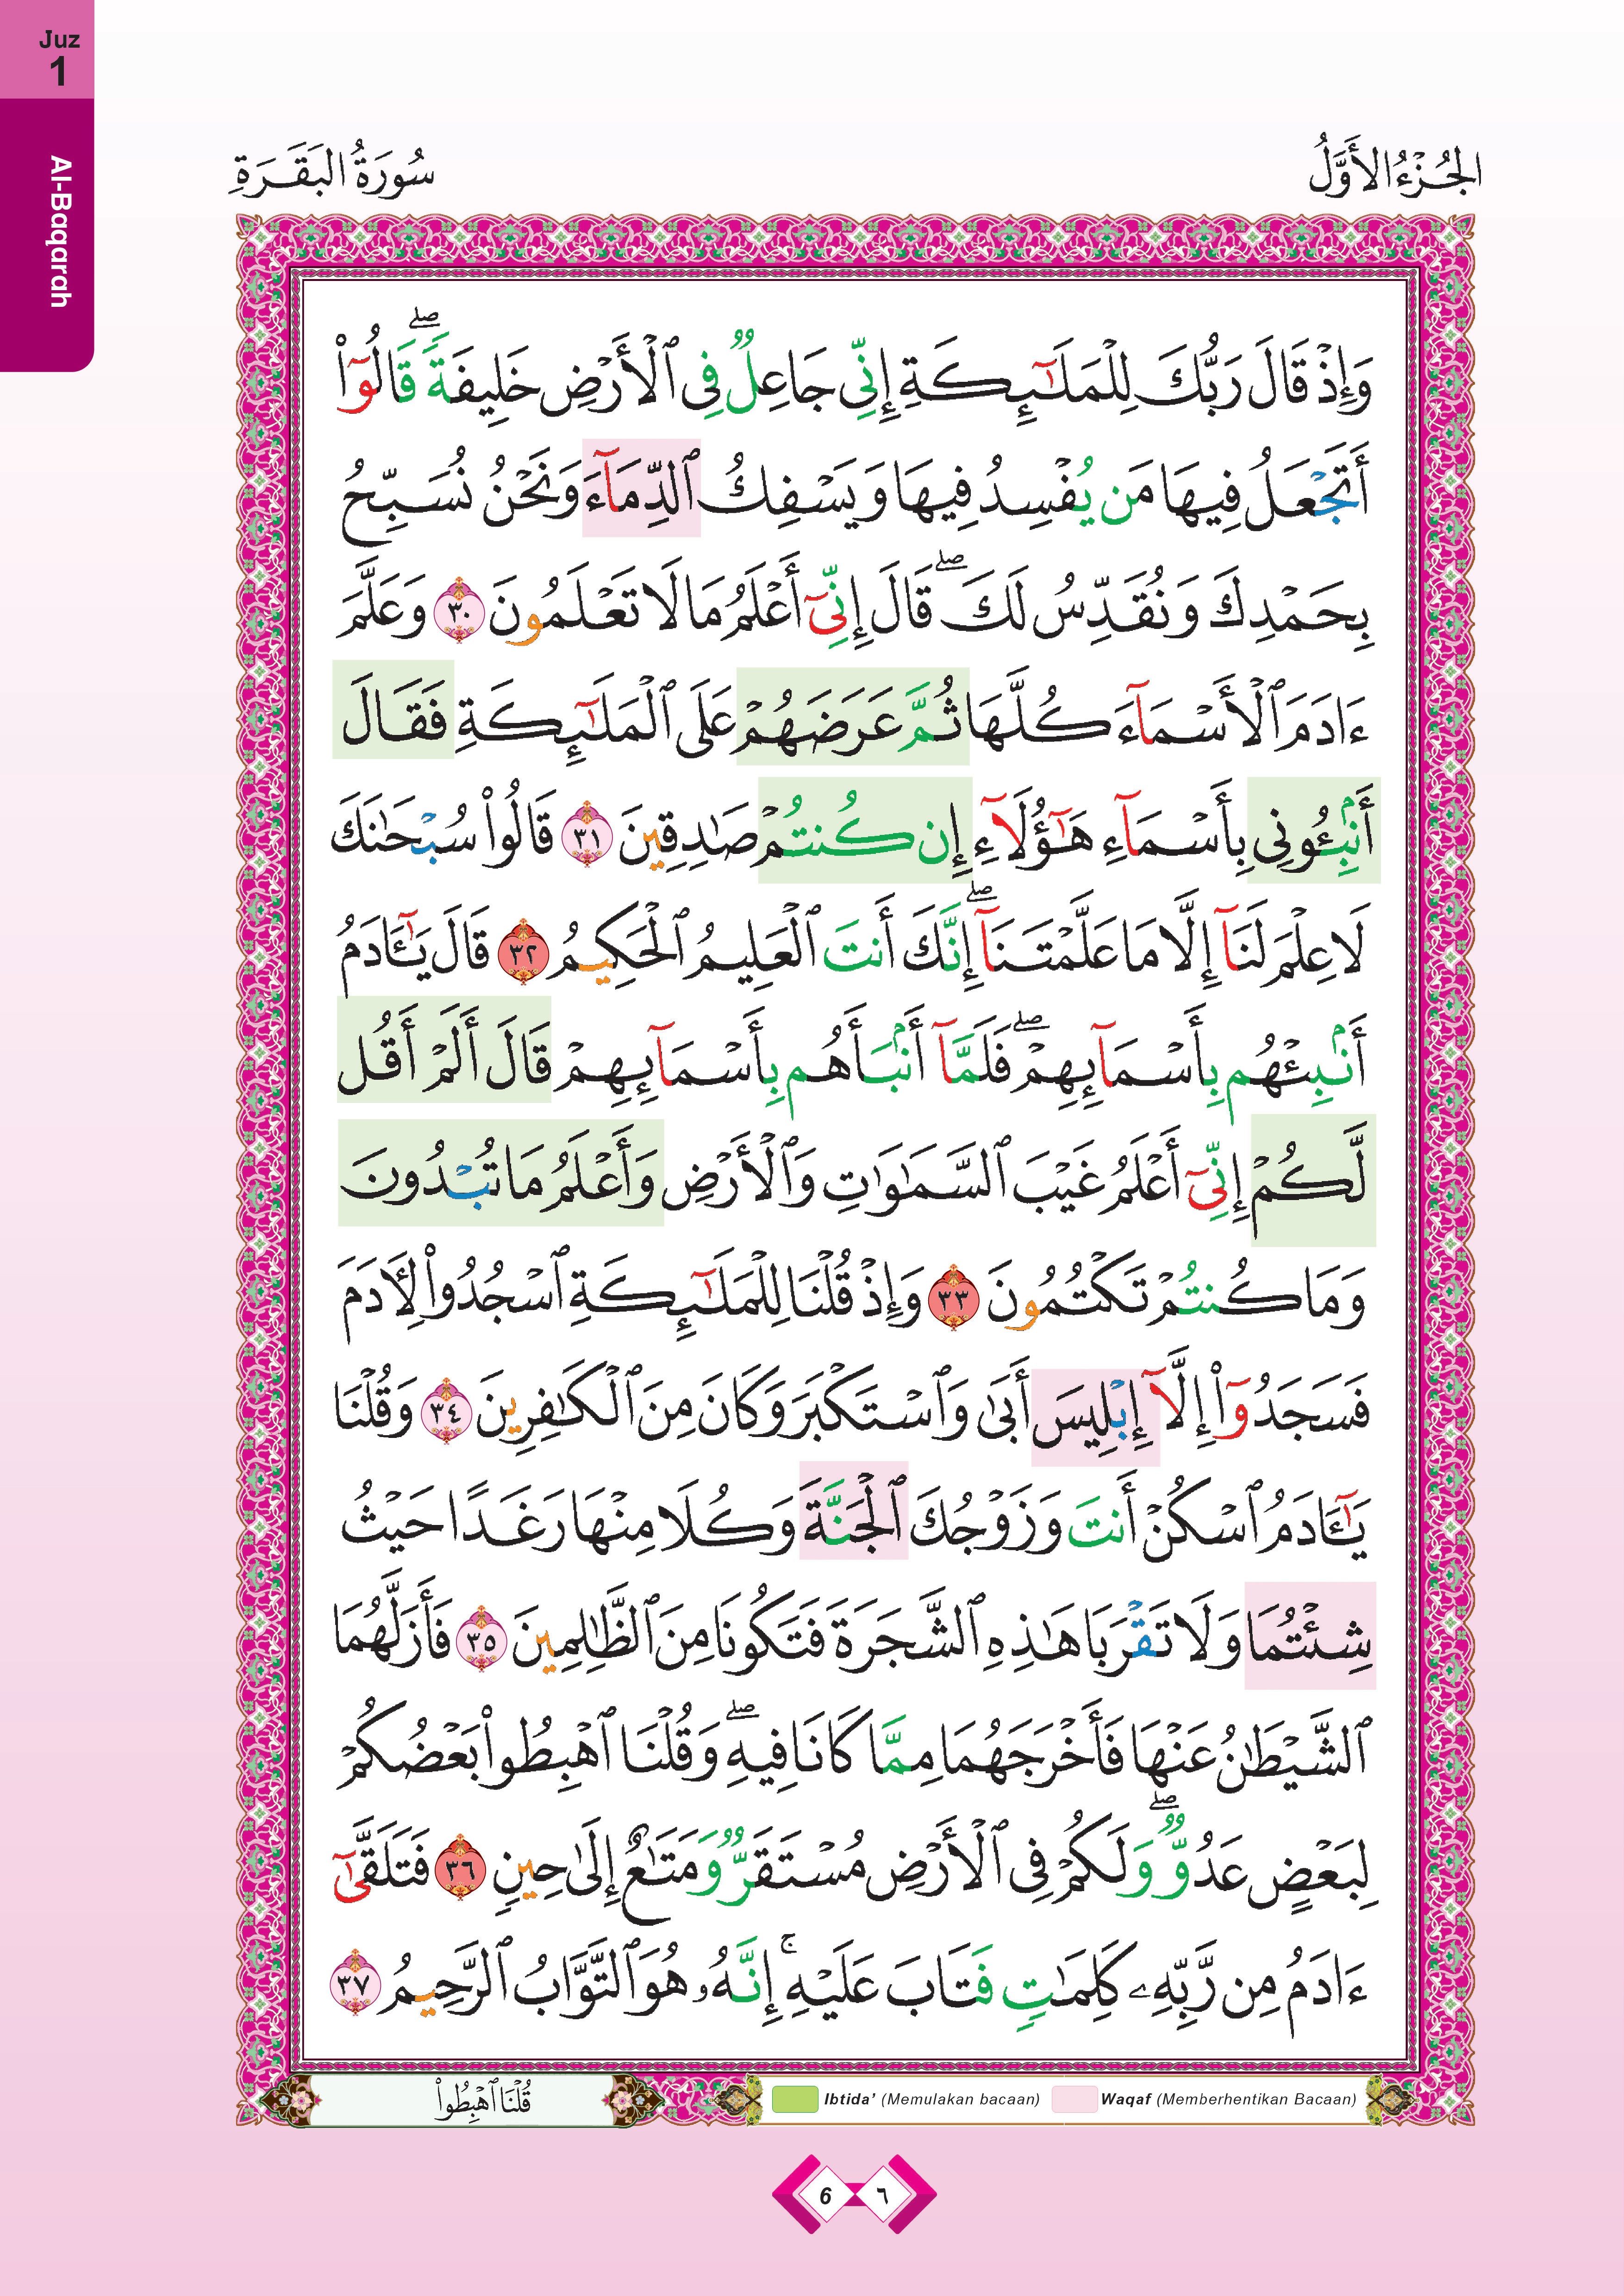 Juz
1
Al-Baqarah
الجُزْءُ الأَوَّلُ
سُورَةُ البَقَرَةِ
وَإِذْ قَالَ رَبُّكَ لِلْمَلَٰٓئِكَةِ إِنِّى جَاعِلٌ فِى ٱلْأَرْضِ خَلِيفَةً ۖ قَالُوٓا۟
أَتَجْعَلُ فِيهَا مَن يُفْسِدُ فِيهَا وَيَسْفِكُ ٱلدِّمَآءَ وَنَحْنُ نُسَبِّحُ
بِحَمْدِكَ وَنُقَدِّسُ لَكَ ۖ قَالَ إِنِّىٓ أَعْلَمُ مَا لَا تَعْلَمُونَ ٣٠ وَعَلَّمَ
ءَادَمَ ٱلْأَسْمَآءَ كُلَّهَا ثُمَّ عَرَضَهُمْ عَلَى ٱلْمَلَٰٓئِكَةِ فَقَالَ
أَنۢبِـُٔونِى بِأَسْمَآءِ هَٰٓؤُلَآءِ إِن كُنتُمْ صَٰدِقِينَ ٣١ قَالُوا۟ سُبْحَٰنَكَ
لَا عِلْمَ لَنَآ إِلَّا مَا عَلَّمْتَنَآ ۖ إِنَّكَ أَنتَ ٱلْعَلِيمُ ٱلْحَكِيمُ ٣٢ قَالَ يَٰٓـَٔادَمُ
أَنۢبِئْهُم بِأَسْمَآئِهِمْ ۖ فَلَمَّآ أَنۢبَأَهُم بِأَسْمَآئِهِمْ قَالَ أَلَمْ أَقُل
لَّكُمْ إِنِّىٓ أَعْلَمُ غَيْبَ ٱلسَّمَٰوَٰتِ وَٱلْأَرْضِ وَأَعْلَمُ مَا تُبْدُونَ
وَمَا كُنتُمْ تَكْتُمُونَ ٣٣ وَإِذْ قُلْنَا لِلْمَلَٰٓئِكَةِ ٱسْجُدُوا۟ لِـَٔادَمَ
فَسَجَدُوٓا۟ إِلَّآ إِبْلِيسَ أَبَىٰ وَٱسْتَكْبَرَ وَكَانَ مِنَ ٱلْكَٰفِرِينَ ٣٤ وَقُلْنَا
يَٰٓـَٔادَمُ ٱسْكُنْ أَنتَ وَزَوْجُكَ ٱلْجَنَّةَ وَكُلَا مِنْهَا رَغَدًا حَيْثُ
شِئْتُمَا وَلَا تَقْرَبَا هَٰذِهِ ٱلشَّجَرَةَ فَتَكُونَا مِنَ ٱلظَّٰلِمِينَ ٣٥ فَأَزَلَّهُمَا
ٱلشَّيْطَٰنُ عَنْهَا فَأَخْرَجَهُمَا مِمَّا كَانَا فِيهِ ۖ وَقُلْنَا ٱهْبِطُوا۟ بَعْضُكُمْ
لِبَعْضٍ عَدُوٌّ ۖ وَلَكُمْ فِى ٱلْأَرْضِ مُسْتَقَرٌّ وَمَتَٰعٌ إِلَىٰ حِينٍ ٣٦ فَتَلَقَّىٰٓ
ءَادَمُ مِن رَّبِّهِۦ كَلِمَٰتٍ فَتَابَ عَلَيْهِ ۚ إِنَّهُۥ هُوَ ٱلتَّوَّابُ ٱلرَّحِيمُ ٣٧
قُلْنَا ٱهْبِطُوا۟
Ibtida' (Memulakan bacaan) Waqaf (Memberhentikan Bacaan)
6 ٦